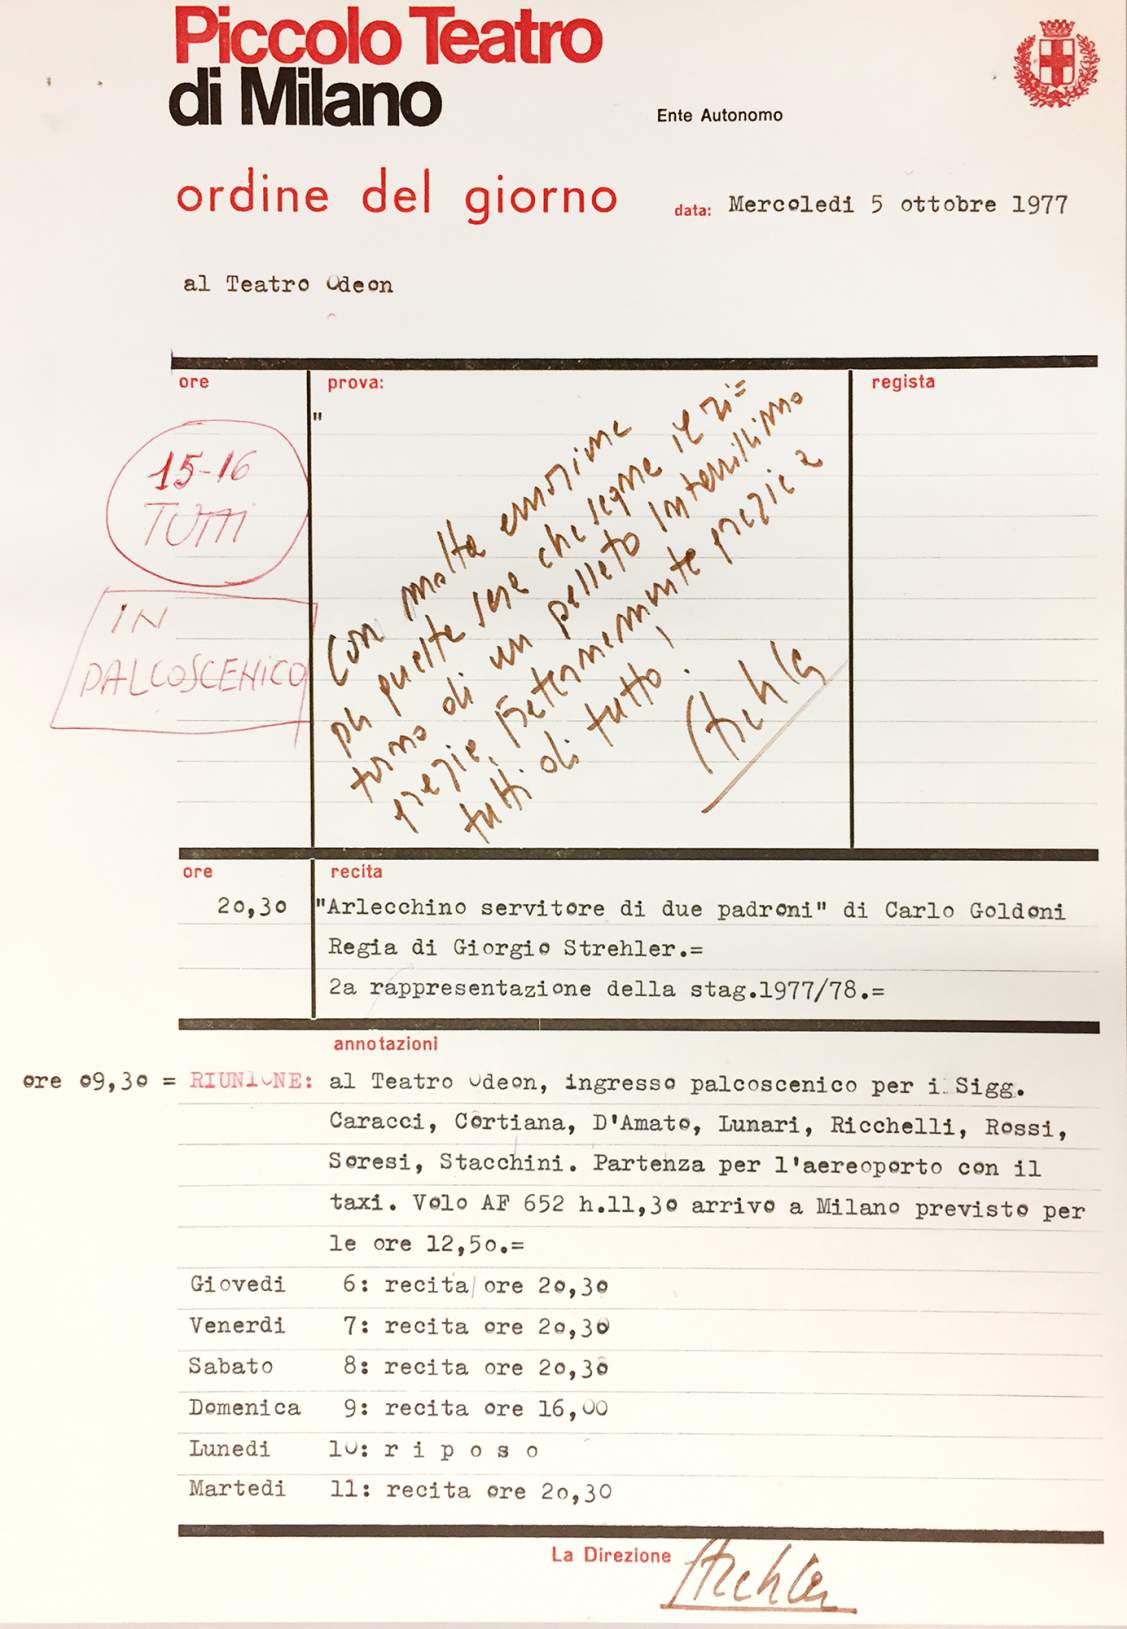 Piccolo Teatro
di Milano
Ente Autonomo
ordine del giorno
data: Mercoledi 5 ottobre 1977
al Teatro Odeon
ore prova: regista
"
15-16
TUTTI
IN
PALCOSCENICO
Con molta emozione
per questa sera che segna il ri=
torno di un palleto interrissimo
grazie. Fraternamente grazie a
tutti di tutto!
Strehler
ore recita
20,30 "Arlecchino servitore di due padroni" di Carlo Goldoni
Regia di Giorgio Strehler.=
2a rappresentazione della stag.1977/78.=
annotazioni
ore 09,30 = RIUNIONE: al Teatro Odeon, ingresso palcoscenico per i Sigg.
Caracci, Cortiana, D'Amato, Lunari, Ricchelli, Rossi,
Soresi, Stacchini. Partenza per l'aereoporto con il
taxi. Volo AF 652 h.11,30 arrivo a Milano previsto per
le ore 12,50.=
Giovedi 6: recita ore 20,30
Venerdi 7: recita ore 20,30
Sabato 8: recita ore 20,30
Domenica 9: recita ore 16,00
Lunedi 10: r i p o s o
Martedi 11: recita ore 20,30
La Direzione Strehler